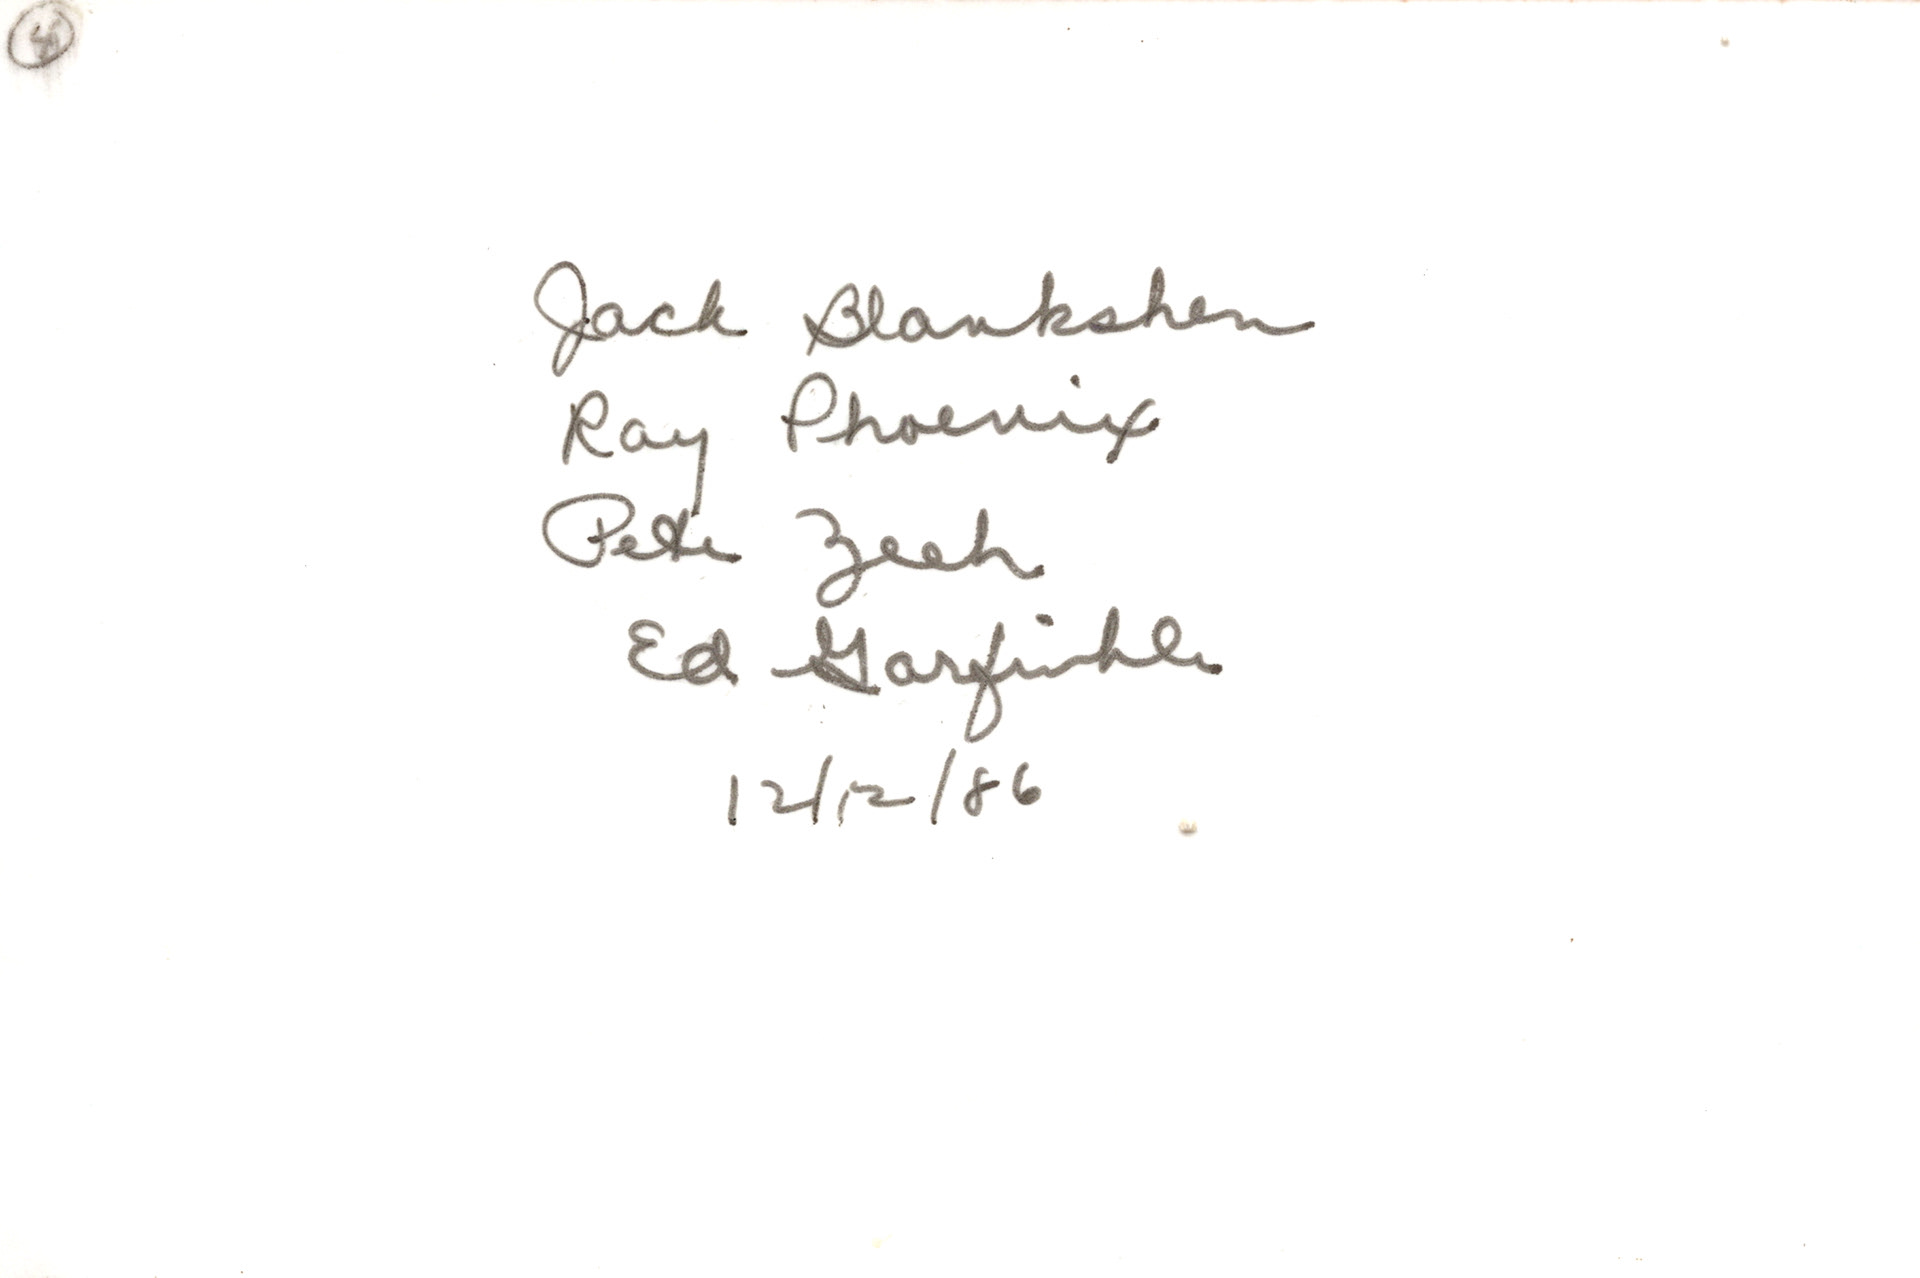 Jack Blankshen
Ray Phoenix
Pete Zech
Ed Garfinkle
12/12/86